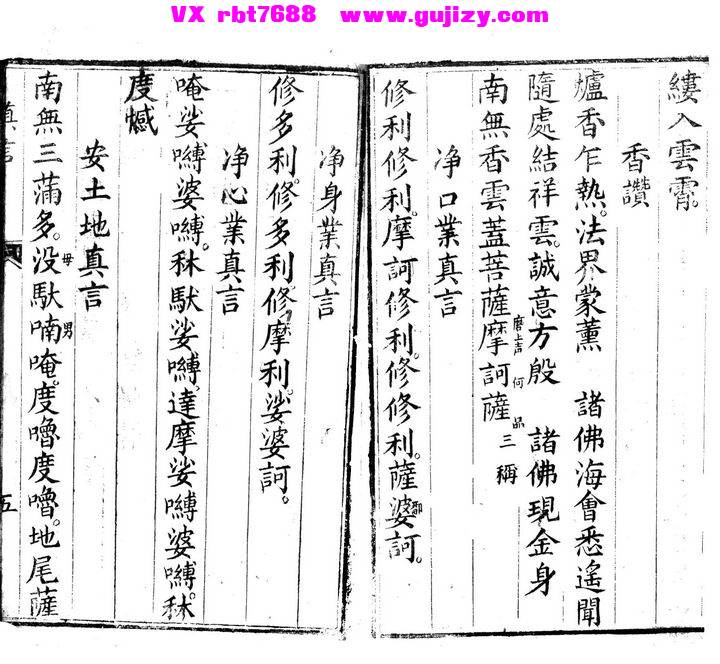 VX rbt7688 www.gujizy.com
縷入雲霄。
香讚
爐香乍熱。法界蒙薰 諸佛海會悉遙聞
隨處結祥雲。誠意方殷 諸佛現金身
南無香雲蓋菩薩摩訶薩 三稱
净口業真言
修利修利。摩訶修利。修修利。薩婆訶。
净身業真言
修多利。修多利。修摩利。娑婆訶。
净心業真言
唵娑嚩婆嚩。秫馱娑嚩達摩娑嚩婆嚩。秫
度憾
安土地真言
南無三滿多。没馱喃唵。度嚕度嚕。地尾薩
真言
五